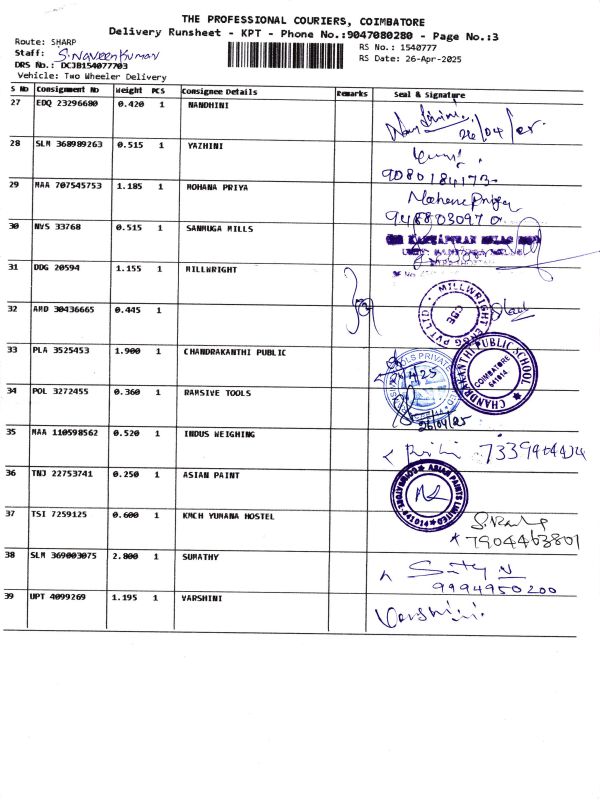 THE PROFESSIONAL COURIERS, COIMBATORE
Delivery Runsheet - KPT - Phone No.:9047080280 - Page No.:3
Route: SHARP
RS No.: 1540777
Staff: S. Naveen Kumar
RS Date: 26-Apr-2025
DRS No.: DCJB154077703
Vehicle: Two Wheeler Delivery
S No Consignment No Weight PCS Consignee Details Remarks Seal & Signature
27 EDQ 23296680 0.420 1 NANDHINI
26/04/25
28 SLM 368989263 0.515 1 YAZHINI
9080184173
29 MAA 707545753 1.185 1 MOHANA PRIYA Mohana Priya
30 NVS 33768 0.515 1 SANMUGA MILLS
31 DDG 20594 1.155 1 MILLWRIGHT
MILLWRIGHT ENGG PVT LTD
CBE
32 AMD 30436665 0.445 1
33 PLA 3525453 1.900 1 CHANDRAKANTHI PUBLIC
CHANDRAKANTHI PUBLIC SCHOOL
COIMBATORE
641014
34 POL 3272455 0.360 1 RAMSIVE TOOLS
26/04/25
35 MAA 110598562 0.520 1 INDUS WEIGHING
36 TNJ 22753741 0.250 1 ASIAN PAINT
ASIAN PAINTS LIMITED
641014
37 TSI 7259125 0.600 1 KMCH YUMANA HOSTEL
7904463801
38 SLM 369003075 2.800 1 SUMATHY
9994950200
39 UPT 4099269 1.195 1 VARSHINI Varshini.